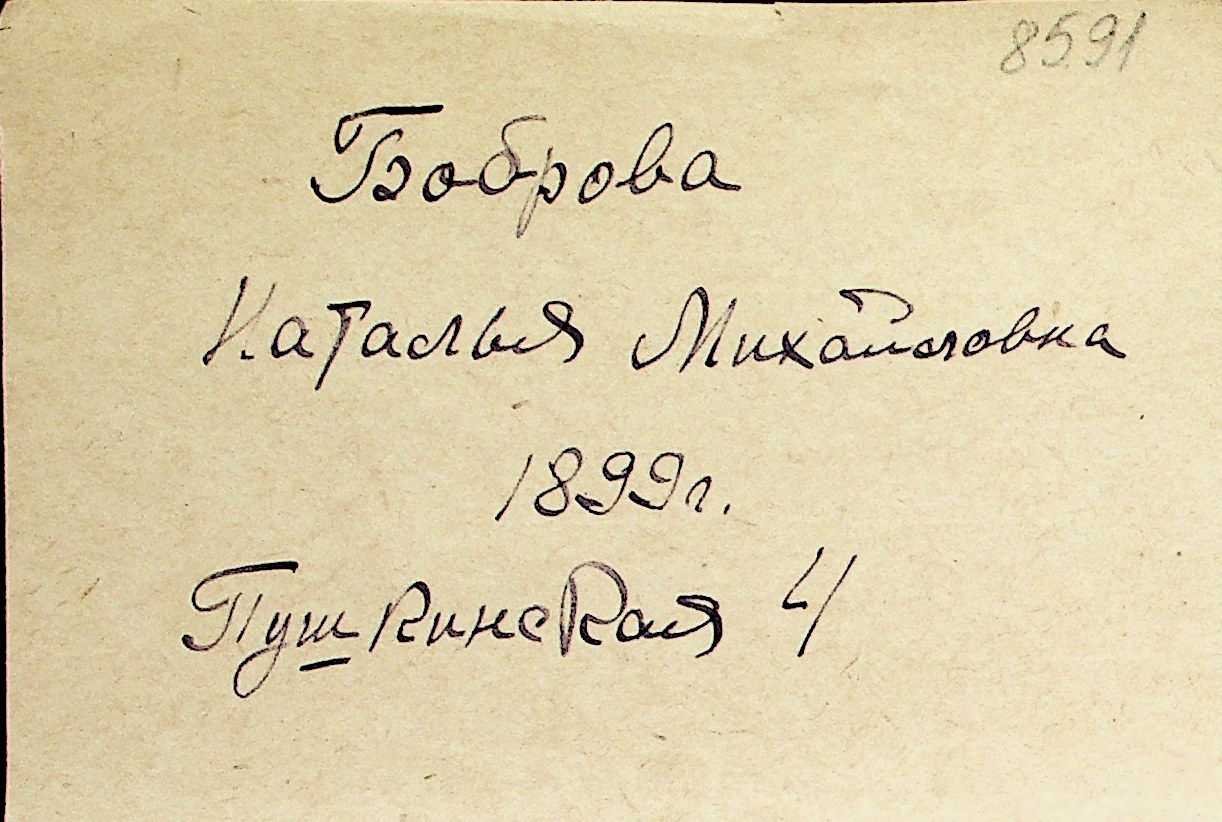 8591
Боброва
Наталья Михайловна
1899г.
Пушкинская 4